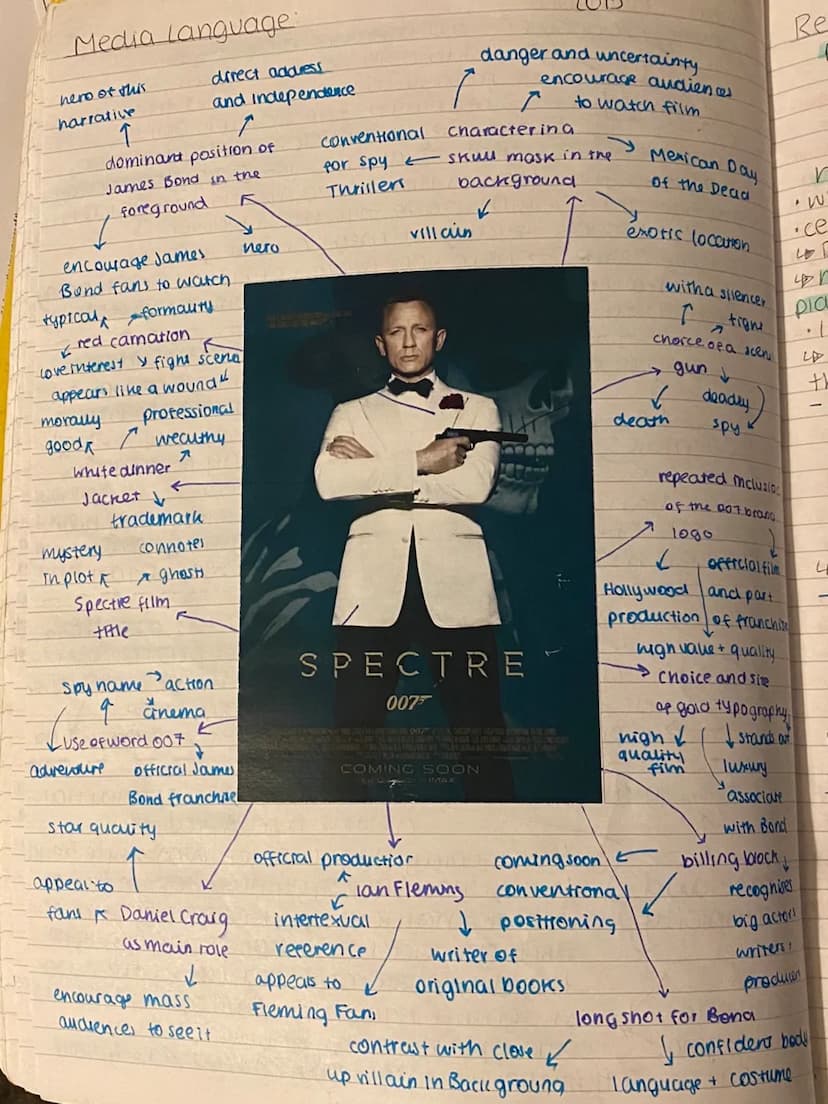 Media Language:
2015
hero of this
narrative
direct address
and independence
dominant position of
James Bond in the
foreground
encourage James
Bond fans to watch
hero
danger and uncertainty
encourage audiences
to watch film
conventional
for spy
Thrillers
character in a
skull mask in the
background
Mexican Day
of the Dead
villain
exotic location
typical
formality
red carnation
love interest
fight scene
appears like a wound
morally
good
professional
wealthy
white dinner
jacket
trademark
mystery
in plot
connotes
ghosts
Spectre film
title
spy name
action
cinema
use of word 007
adventure
official James
Bond franchise
star quality
appeal to
fans
Daniel Craig
as main role
encourage mass
audiences to see it
with a silencer
fight
scene
choice of a
gun
deadly
spy
death
repeated inclusio
of the 007 brand
logo
Hollywood
production
official film
and part
of franchise
high value + quality
choice and size
of gold typography
high
quality
film
stands out
luxury
associate
with Bond
billing block
coming soon
conventional
positioning
recognises
big actors
writers +
producer
official production
Ian Fleming
intertexual
reference
appeals to
Fleming Fans
writer of
original books
long shot for Bond
contrast with close
up villain in Background
confident body
language + costume
SPECTRE
007
COMING SOON
Re